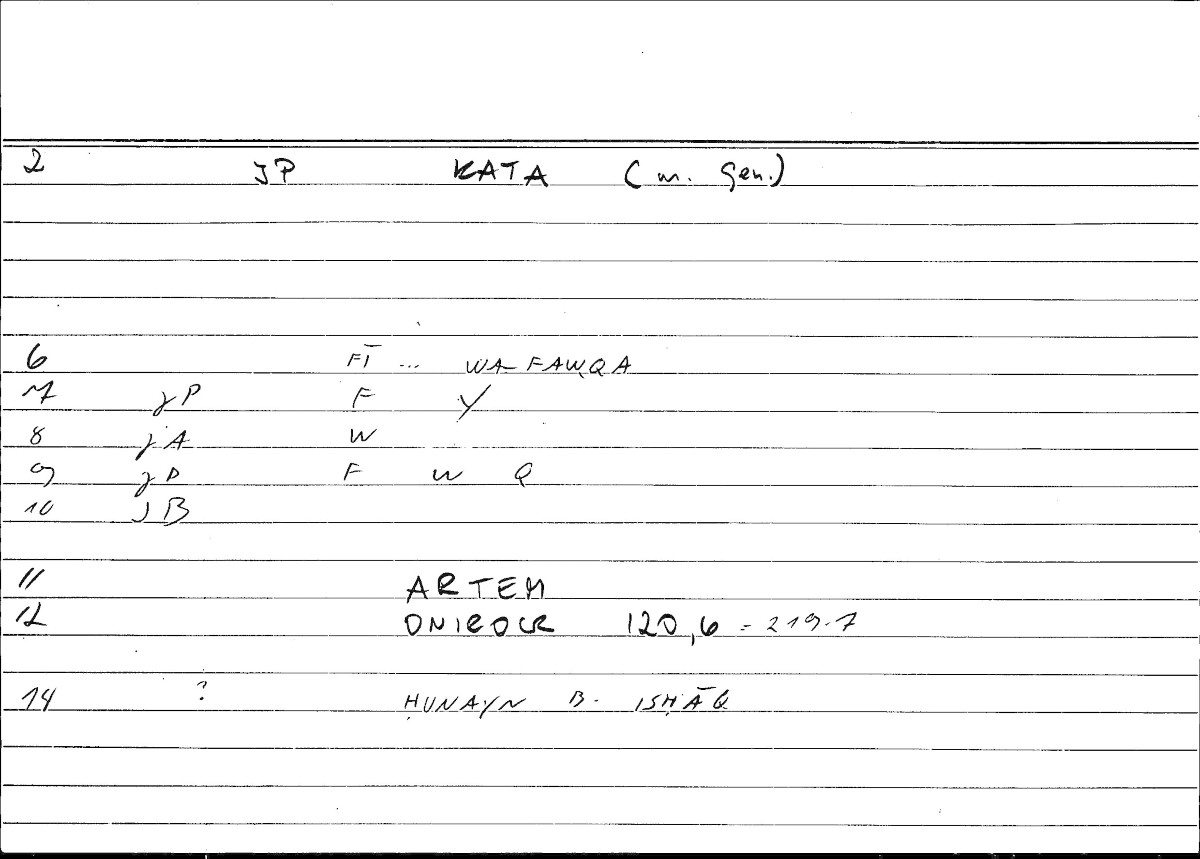 2 JP KATA (m. Gen.)
6 FĪ ... WA-FAWQA
7 JP F Y
8 JA W
9 JP F W Q
10 JB
11 ARTEM
12 ONIROCR 120,6 = 219.7
14 ? ḤUNAYN B. ISḤĀQ